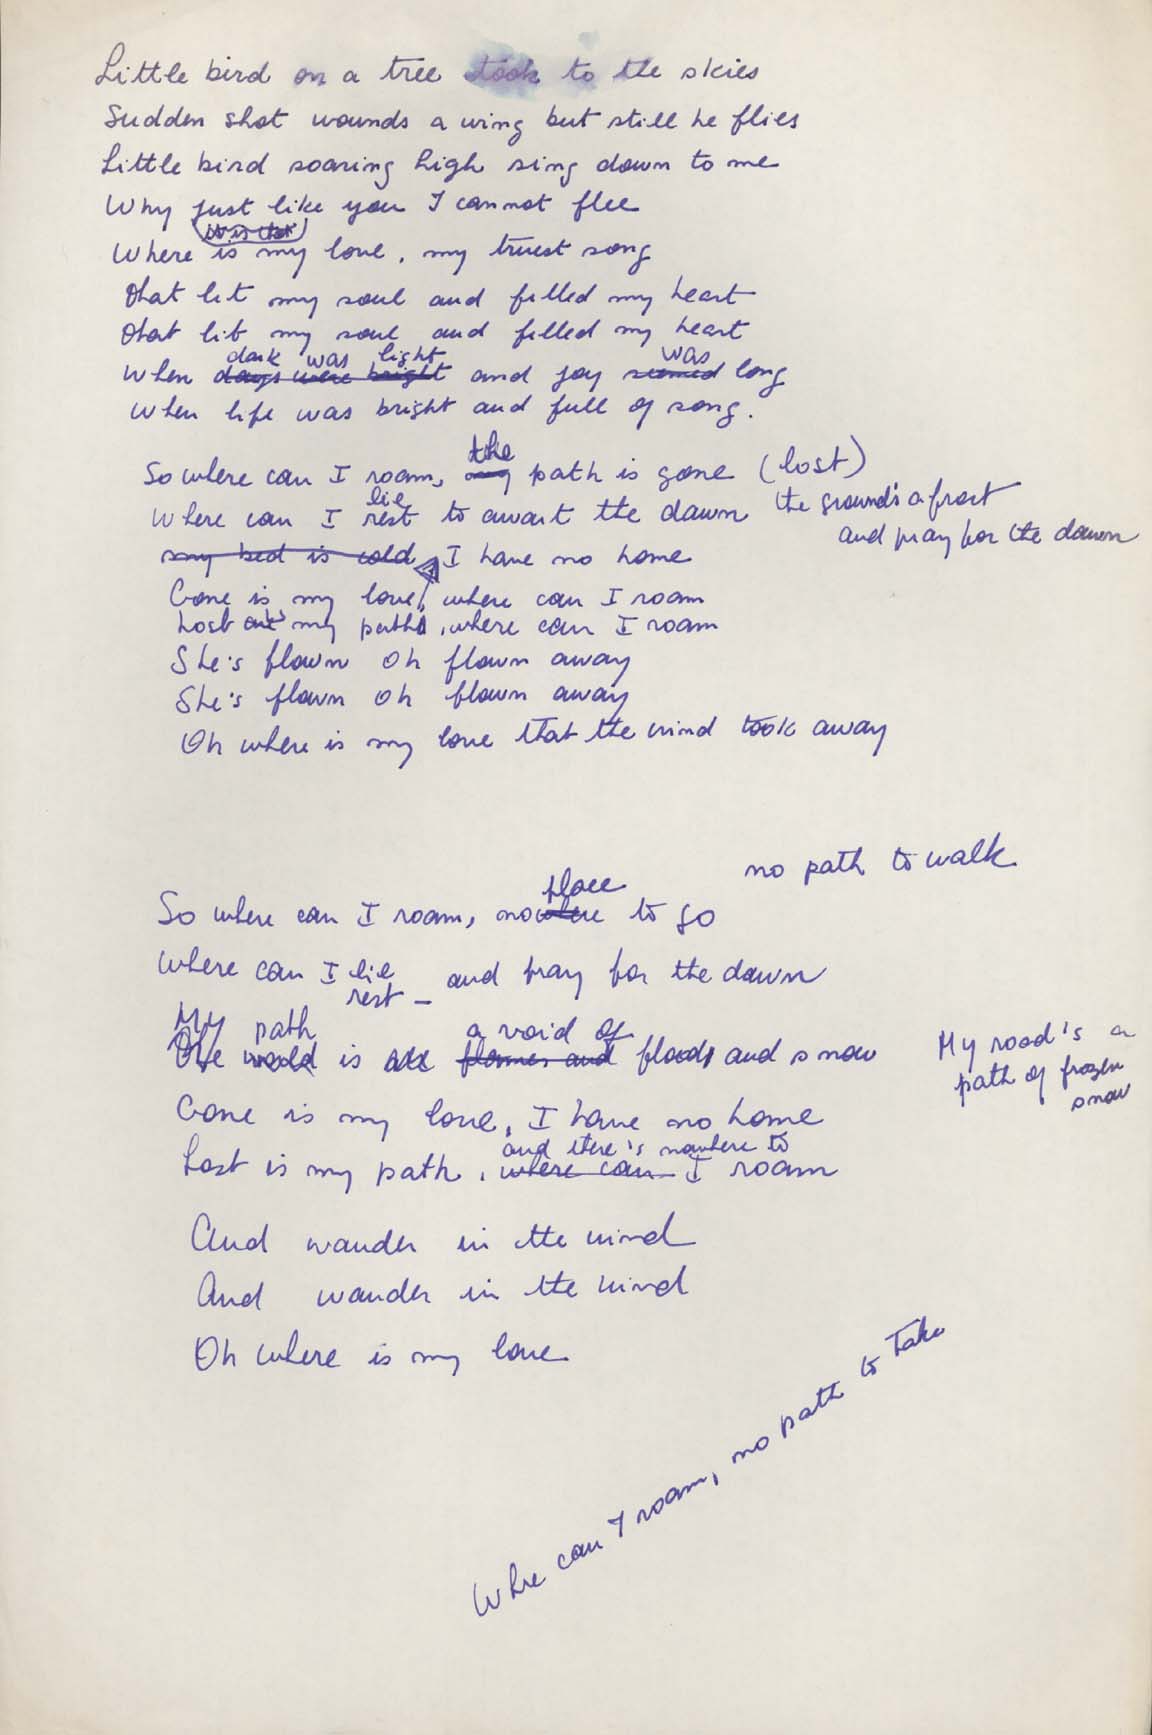 Little bird on a tree took to the skies
Sudden shot wounds a wing but still he flies
Little bird soaring high sing down to me
Why just like you I cannot flee
it is that
Where is my love, my truest song
that lit my soul and filled my heart
that lit my soul and filled my heart
dark was light was
When days were bright and joy seemed long
When life was bright and full of song.
the
So where can I roam, my path is gone (lost)
lie
Where can I rest to await the dawn the ground's a frost
and pray for the dawn
my bed is cold I have no home
Gone is my love, where can I roam
Lost my path, where can I roam
She's flown oh flown away
She's flown oh flown away
Oh where is my love that the wind took away
no path to walk
place
So where can I roam, nowhere to go
Where can I lie and pray for the dawn
rest –
My path a void of
The world is all flames and floods and snow
My road's a
path of frozen
snow
Gone is my love, I have no home
and there's nowhere to
Lost is my path, where can I roam
And wander in the wind
And wander in the wind
Oh where is my love
Whre can I roam, no path to take